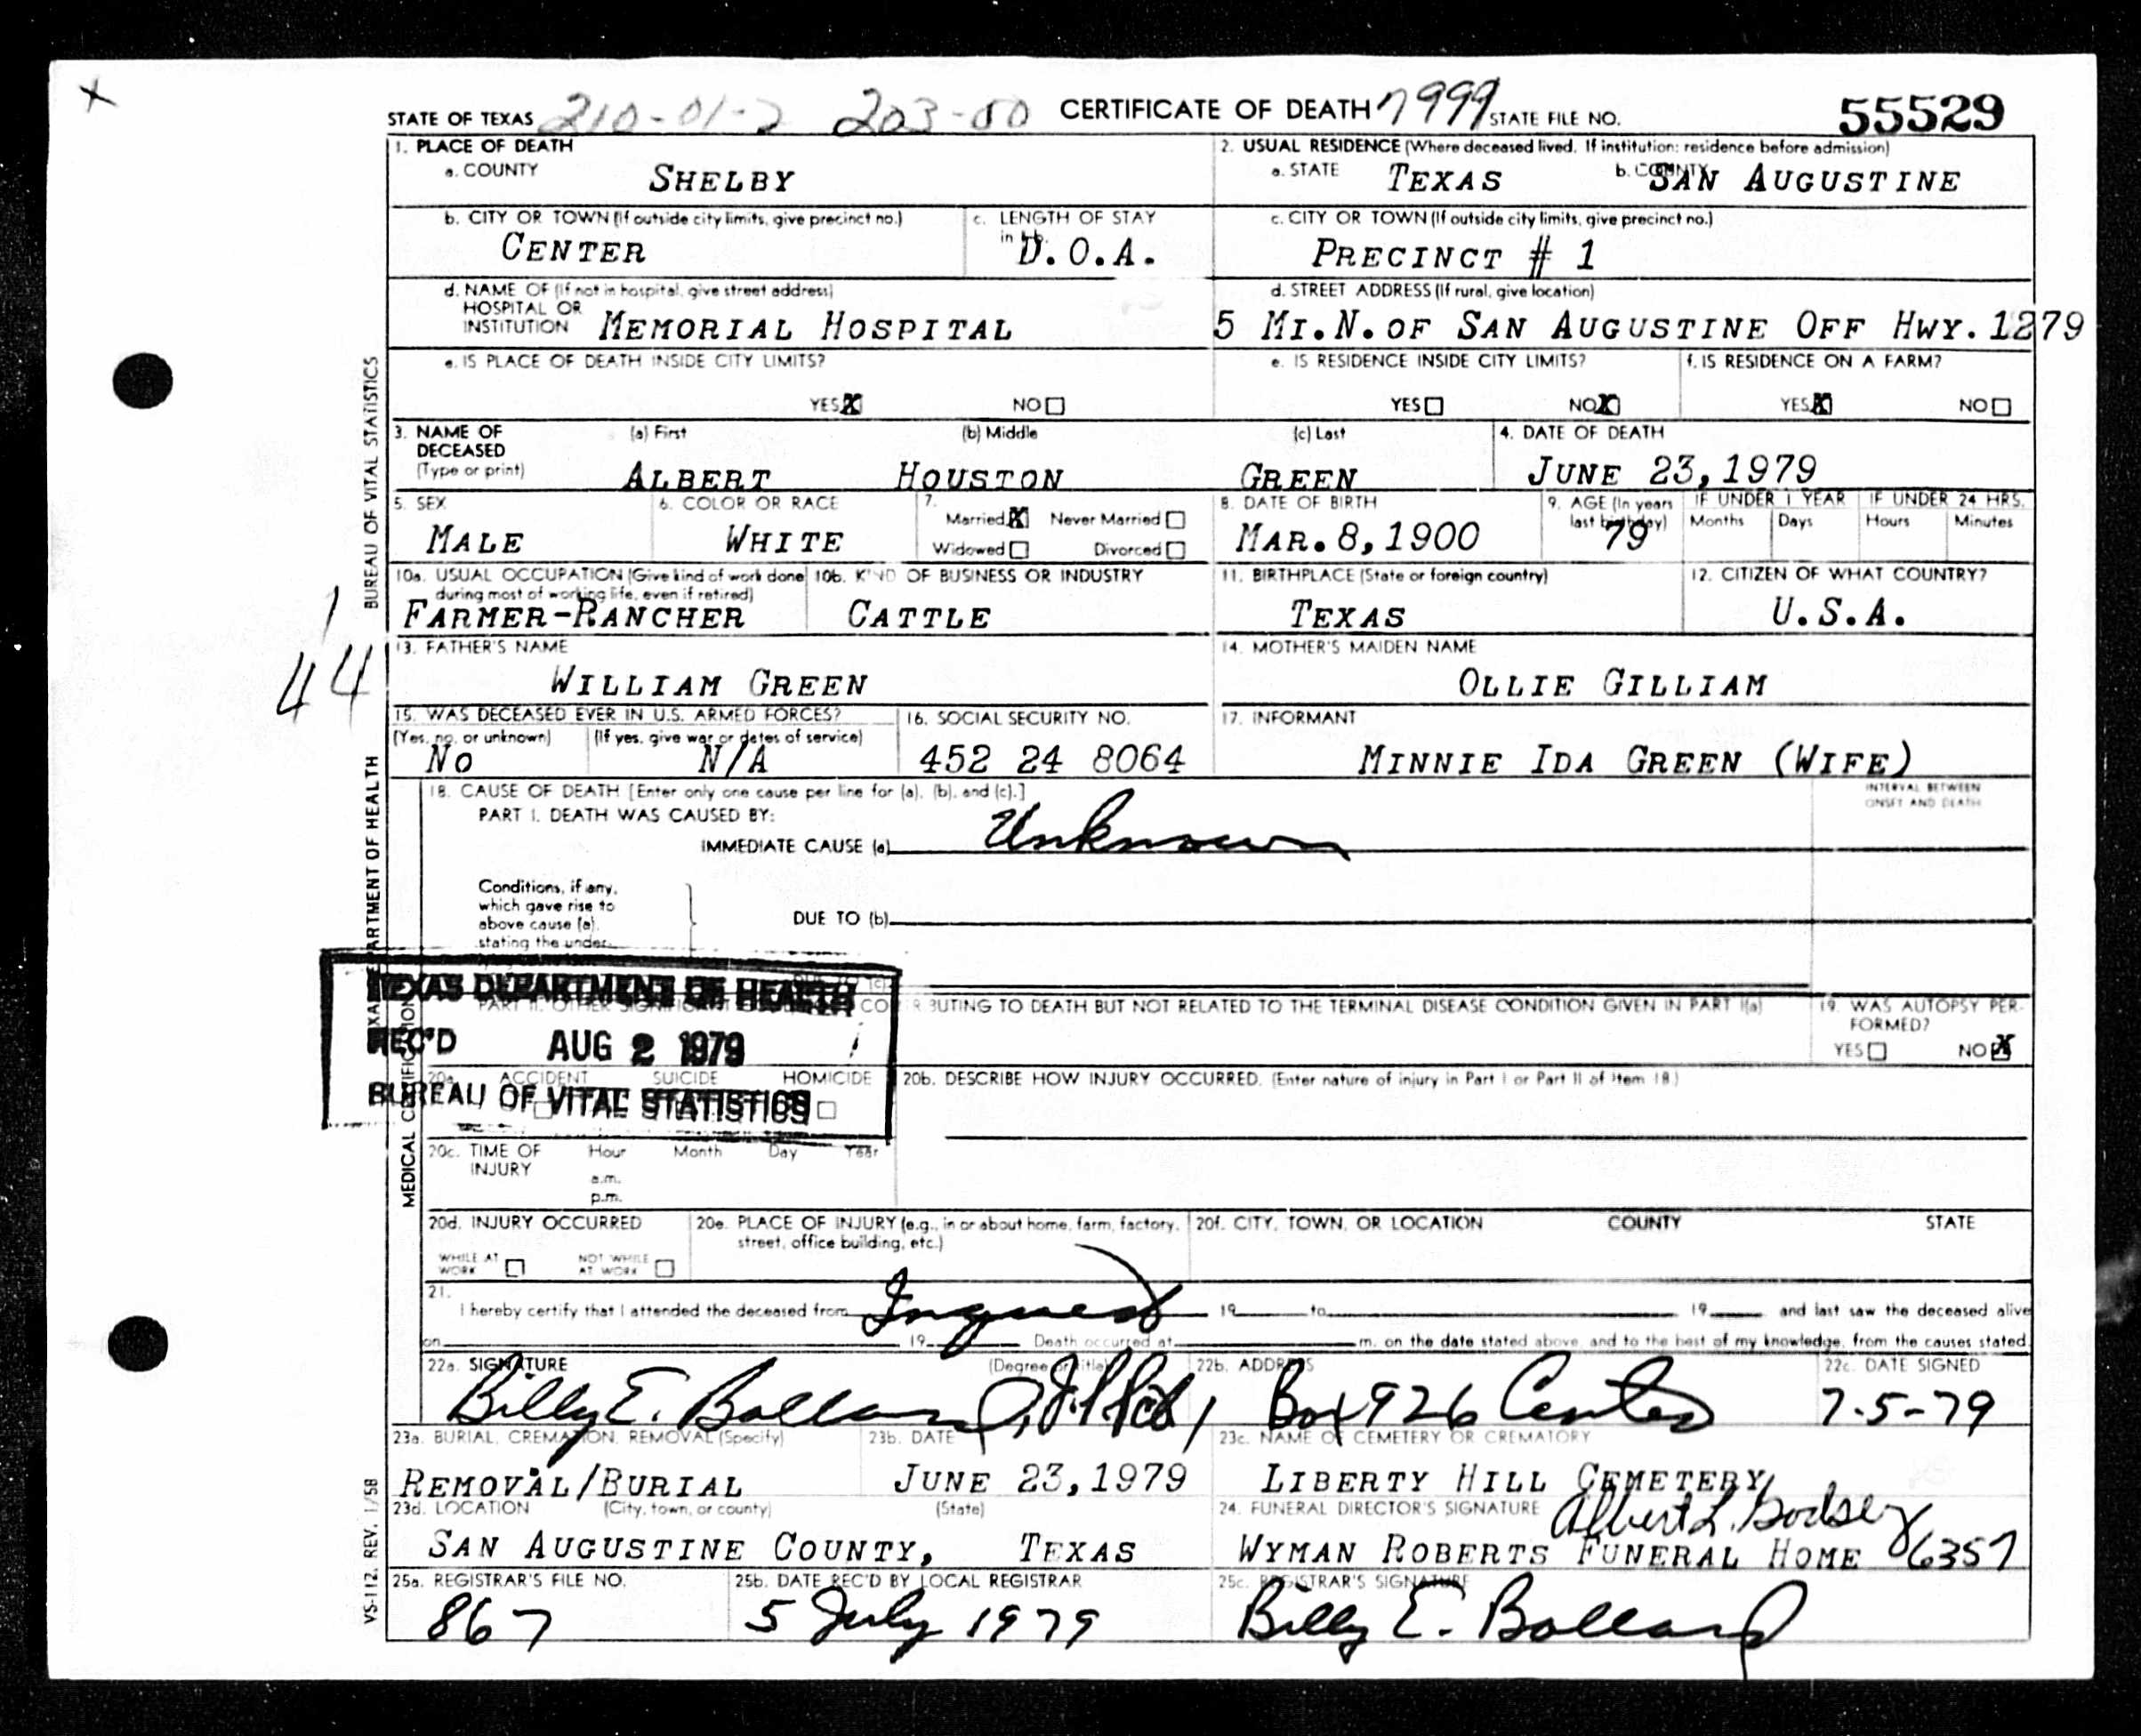 STATE OF TEXAS 210-01-2 203-00 CERTIFICATE OF DEATH 7999 STATE FILE NO. 55529
1. PLACE OF DEATH
a. COUNTY SHELBY
2. USUAL RESIDENCE (Where deceased lived. If institution: residence before admission)
a. STATE TEXAS b. COUNTY SAN AUGUSTINE
b. CITY OR TOWN (If outside city limits, give precinct no.) CENTER
c. LENGTH OF STAY in 1b. D.O.A.
c. CITY OR TOWN (If outside city limits, give precinct no.) PRECINCT # 1
d. NAME OF (If not in hospital, give street address)
HOSPITAL OR
INSTITUTION MEMORIAL HOSPITAL
d. STREET ADDRESS (If rural, give location)
5 MI.N.OF SAN AUGUSTINE OFF HWY.1279
e. IS PLACE OF DEATH INSIDE CITY LIMITS?
YES X NO
e. IS RESIDENCE INSIDE CITY LIMITS?
YES NO X
f. IS RESIDENCE ON A FARM?
YES X NO
3. NAME OF DECEASED (Type or print)
(a) First (b) Middle (c) Last
ALBERT HOUSTON GREEN
4. DATE OF DEATH
JUNE 23,1979
5. SEX
MALE
6. COLOR OR RACE
WHITE
7.
Married X Never Married
Widowed Divorced
8. DATE OF BIRTH
MAR.8,1900
9. AGE (In years last birthday) 79
IF UNDER 1 YEAR
Months Days
IF UNDER 24 HRS.
Hours Minutes
10a. USUAL OCCUPATION (Give kind of work done
during most of working life, even if retired)
FARMER-RANCHER
10b. KIND OF BUSINESS OR INDUSTRY
CATTLE
11. BIRTHPLACE (State or foreign country)
TEXAS
12. CITIZEN OF WHAT COUNTRY?
U.S.A.
13. FATHER'S NAME
WILLIAM GREEN
14. MOTHER'S MAIDEN NAME
OLLIE GILLIAM
15. WAS DECEASED EVER IN U.S. ARMED FORCES?
(Yes, no, or unknown) (If yes, give war or dates of service)
NO N/A
16. SOCIAL SECURITY NO.
452 24 8064
17. INFORMANT
MINNIE IDA GREEN (WIFE)
18. CAUSE OF DEATH [Enter only one cause per line for (a), (b), and (c).]
INTERVAL BETWEEN
ONSET AND DEATH
PART I. DEATH WAS CAUSED BY:
IMMEDIATE CAUSE (a) Unknown
Conditions, if any,
which gave rise to
above cause (a),
stating the under-
DUE TO (b)
TEXAS DEPARTMENT OF HEALTH
REC'D AUG 2 1979
BUREAU OF VITAL STATISTICS
PART II. OTHER SIGNIFICANT CONTRIBUTING TO DEATH BUT NOT RELATED TO THE TERMINAL DISEASE CONDITION GIVEN IN PART I(a)
19. WAS AUTOPSY PER-
FORMED?
YES NO X
20a. ACCIDENT SUICIDE HOMICIDE
20b. DESCRIBE HOW INJURY OCCURRED. (Enter nature of injury in Part I or Part II of Item 18.)
20c. TIME OF INJURY
Hour Month Day Year
a.m.
p.m.
20d. INJURY OCCURRED
WHILE AT WORK NOT WHILE AT WORK
20e. PLACE OF INJURY (e.g., in or about home, farm, factory,
street, office building, etc.)
20f. CITY, TOWN, OR LOCATION COUNTY STATE
21.
I hereby certify that I attended the deceased from Inquest 19 to 19 and last saw the deceased alive
on 19 Death occurred at m. on the date stated above, and to the best of my knowledge, from the causes stated.
22a. SIGNATURE (Degree or title)
Billy E. Ballard, J.P. Pct 1
22b. ADDRESS
Box 926 Center
22c. DATE SIGNED
7-5-79
23a. BURIAL, CREMATION, REMOVAL (Specify)
REMOVAL/BURIAL
23b. DATE
JUNE 23,1979
23c. NAME OF CEMETERY OR CREMATORY
LIBERTY HILL CEMETERY
23d. LOCATION (City, town, or county) (State)
SAN AUGUSTINE COUNTY, TEXAS
24. FUNERAL DIRECTOR'S SIGNATURE Albert L. Godsey
WYMAN ROBERTS FUNERAL HOME 6357
25a. REGISTRAR'S FILE NO.
867
25b. DATE REC'D BY LOCAL REGISTRAR
5 July 1979
25c. REGISTRAR'S SIGNATURE
Billy E. Ballard
BUREAU OF VITAL STATISTICS
TEXAS DEPARTMENT OF HEALTH
MEDICAL CERTIFICATION
VS-112, REV. 1/58
1
44